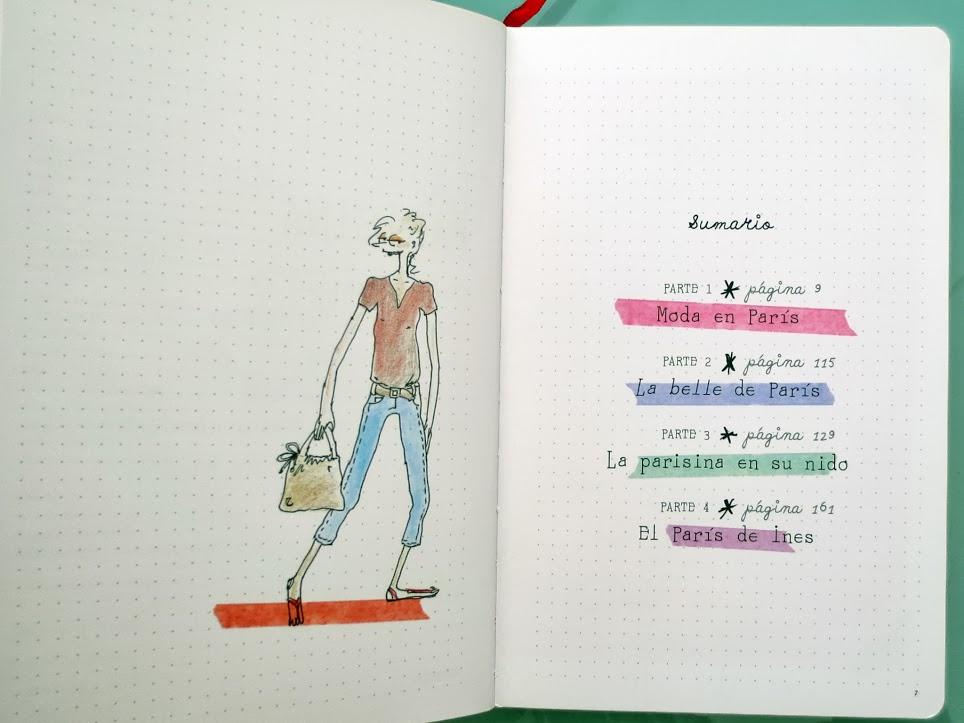 Sumario
PARTE 1 * página 9
Moda en París
PARTE 2 * página 115
La belle de París
PARTE 3 * página 129
La parisina en su nido
PARTE 4 * página 161
El París de Ines
7